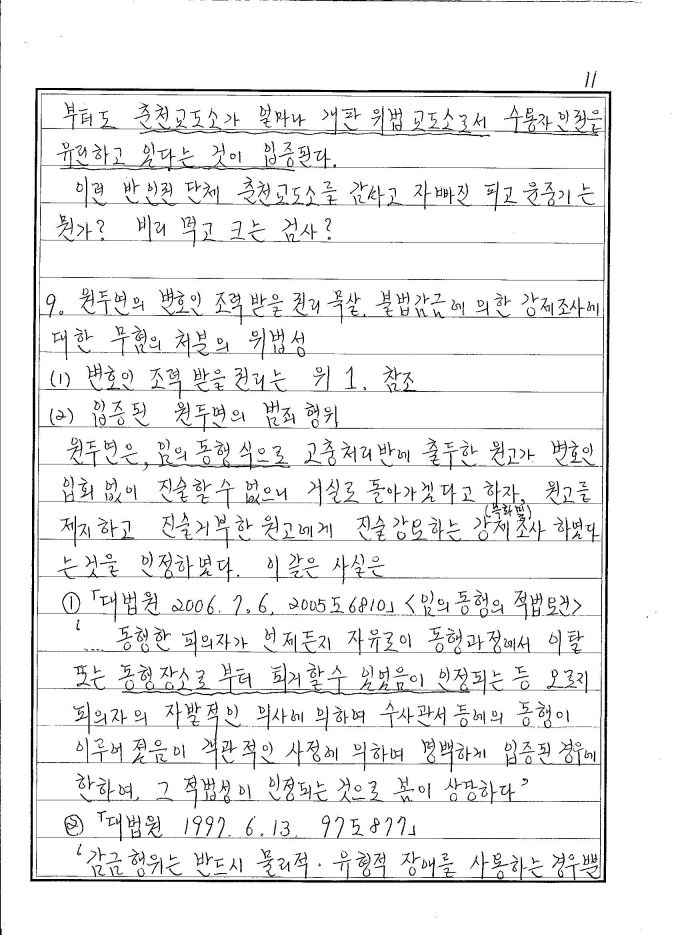 11
부터도 춘천교도소가 얼마나 개판 위법교도소로서 수용자인권을
유린하고 있다는 것이 입증된다.
이런 반인권 단체 춘천교도소를 감싸고 자빠진 피고 윤중기는
뭔가? 비리 먹고 크는 검사?
9. 원두연의 변호인 조력 받을 권리 묵살, 불법감금에 의한 강제조사에
대한 무혐의 처분의 위법성
(1) 변호인 조력 받을 권리는 위 1. 참조
(2) 입증된 원두연의 범죄행위
원두연은, 임의동행식으로 고충처리반에 출두한 원고가 변호인
입회 없이 진술할 수 없으니 거실로 돌아가겠다고 하자, 원고를
제지하고 진술거부한 원고에게 진술강요하는 강제조사 하였다
(녹화됨)
는것을 인정하였다. 이 같은 사실은
① 「대법원 2006. 7. 6. 2005도6810」 <임의동행의 적법요건>
‘.... 동행한 피의자가 언제든지 자유로이 동행과정에서 이탈
또는 동행장소로 부터 퇴거할 수 있었음이 인정되는 등 오로지
피의자의 자발적인 의사에 의하여 수사관서 등에의 동행이
이루어 졌음이 객관적인 사정에 의하여 명백하게 입증된 경우에
한하여, 그 적법성이 인정되는 것으로 봄이 상당하다’
② 「대법원 1997. 6. 13. 97도877」
‘감금행위는 반드시 물리적·유형적 장애를 사용하는 경우뿐